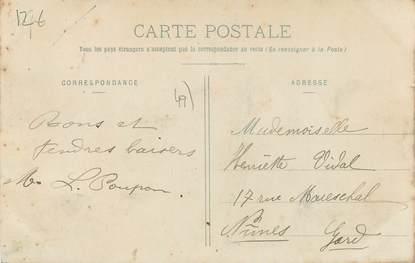 1246
CARTE POSTALE
Tous les pays étrangers n'acceptent pas la correspondance au recto (Se renseigner à la Poste)
CORRESPONDANCE
19)
Bons et
tendres baisers
L. Poupon
ADRESSE
Mademoiselle
Henriette Vidal
17 rue Mareschal
Nîmes Gard